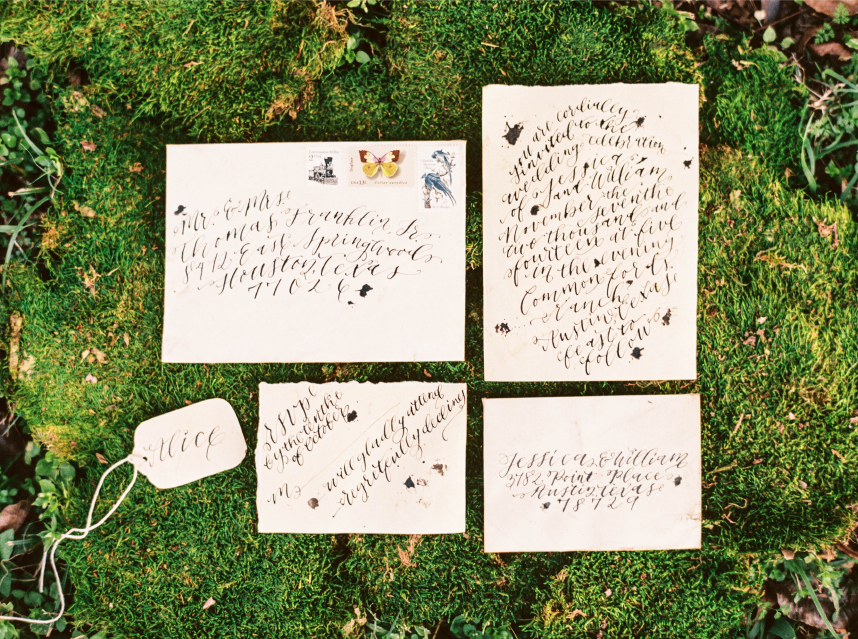 Mr. & Mrs.
Thomas Franklin Sr.
5912 East Springwoods
Houston, Texas
77026
you are cordially
invited to the
wedding celebration
of Jessica
and William
November the
seventh
two thousand and
fourteen at five
in the evening
Commonfords
Ranch
Austin, Texas
feast to
follow
Alice
RSVP
by the
of october
M
will gladly attend
regretfully decline
Jessica & William
5782 Point Place
Austin, Texas
78729